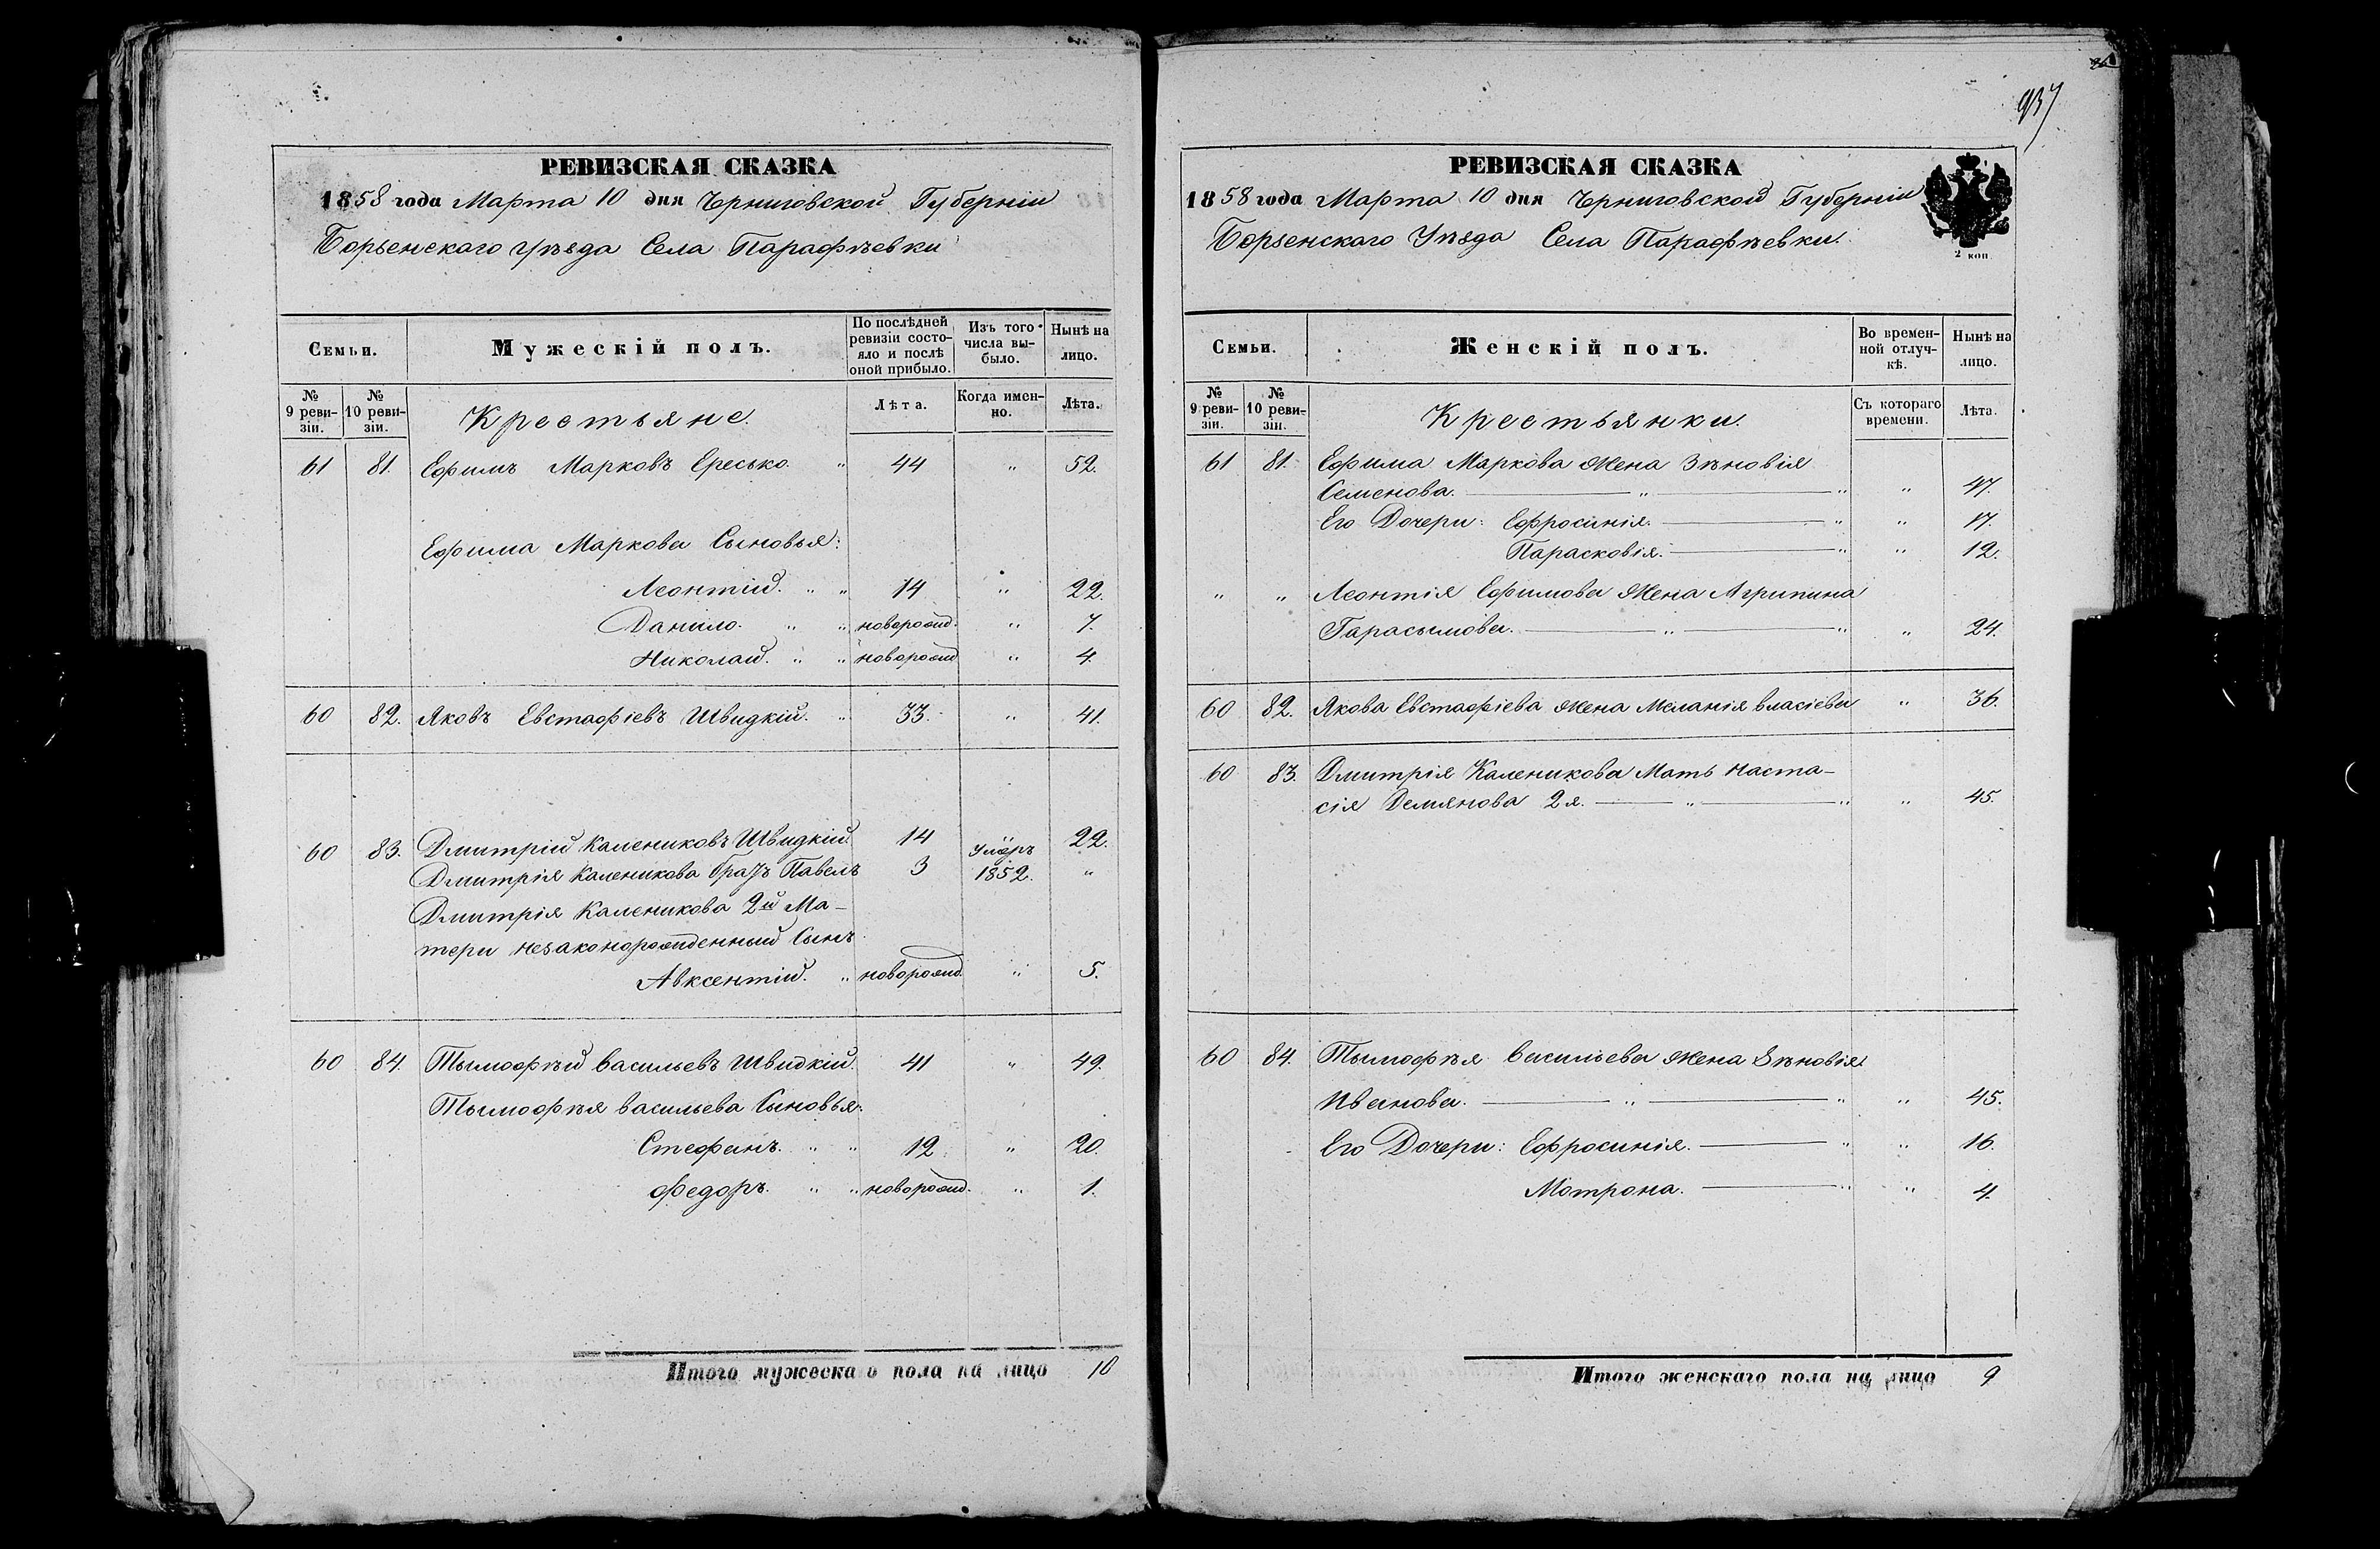 РЕВИЗСКАЯ СКАЗКА
1858 года Марта 10 дня Черниговской Губерніи
Борзенскаго Уѣзда Села Парафѣевки
Семьи. Мужескій полъ. По послѣдней ревизіи состояло и послѣ оной прибыло. Изъ того числа выбыло. Нынѣ на лицо.
№ 9 ревизіи. № 10 ревизіи. Крестьяне. Лѣта. Когда именно. Лѣта.
61 81. Ефимъ Марковъ Ересько. " 44 " 52.
Ефима Маркова Сыновья:
Леонтій. " " 14 " 22.
Данило. " " новорожд. " 7.
Николай. " " новорожд " 4.
60 82. Яковъ Евстафіевъ Швидкій. " 33. " 41.
60 83. Дмитрій Калениковъ Швидкій. 14 22.
Дмитрія Каленикова братъ Павелъ 3 умеръ 1852. "
Дмитрія Каленикова 2й Ма-
тери незаконорожденный Сынъ
Авксентій. " новорожд. " 5.
60 84. Тымофѣй Васильевъ Швидкій. 41 " 49.
Тымофѣя Васильева Сыновья:
Стефанъ. " " 12. " 20.
Федоръ. " " новорожд. " 1.
Итого мужескаго пола на лицо 10
937
РЕВИЗСКАЯ СКАЗКА
1858 года Марта 10 дня Черниговской Губерніи
Борзенскаго Уѣзда Села Парафѣевки.
2 коп.
Семьи. Женскій полъ. Во временной отлучкѣ. Нынѣ на лицо.
№ 9 ревизіи. № 10 ревизіи. Крестьянки. Съ котораго времени. Лѣта.
61 81. Ефима Маркова Жена Зѣновія
Семенова. " " " 47.
Его Дочери: Ефросинія. " " 17.
Парасковія. " " 12.
" " Леонтія Ефимова Жена Агрипина
Гарасымова. " " " 24.
60 82. Якова Евстафіева Жена Меланія Власіева " 36.
60 83. Дмитрія Каленикова Мать Наста-
сія Демянова 2я. " " " 45.
60 84. Тымофѣя Васильева Жена Зѣновія
Иванова. " " " 45.
Его Дочери: Ефросинія. " " 16.
Мотрона. " " 4.
Итого женскаго пола на лицо 9